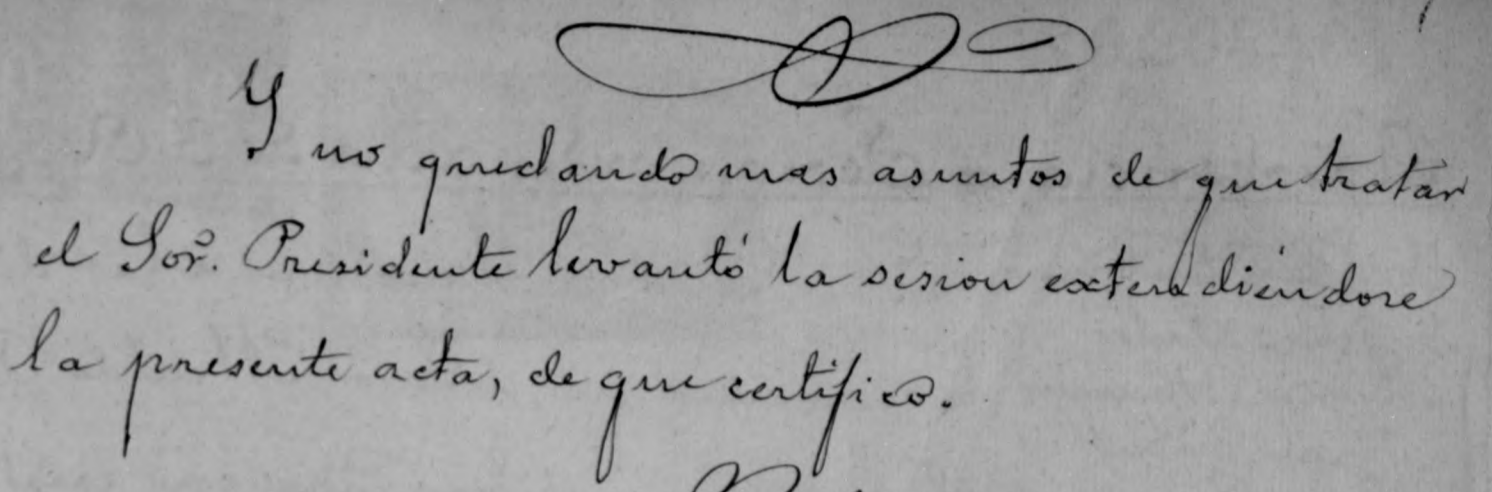 Y no quedando mas asuntos de que tratar
el Sor. Presidente levantó la sesion extendiéndose
la presente acta, de que certifico.